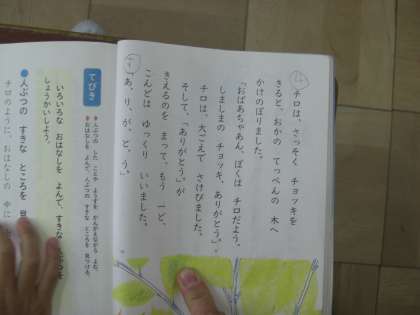 チロは、さっそく チョッキを
きると、おかの てっぺんの 木へ
かけのぼりました。
「おばあちゃあん、ぼくは チロだよう。
しましまの チョッキ、ありがとう。」
チロは、大ごえで さけびました。
そして、「ありがとう。」が
きえるのを まって、もう 一ど、
こんどは ゆっくり いいました。
「あ、り、が、と、う。」
てびき
いろいろな おはなしを よんで、すきな
しょうかいしよう。
●人ぶつの すきな ところを
チロのように、おはなしの 中に